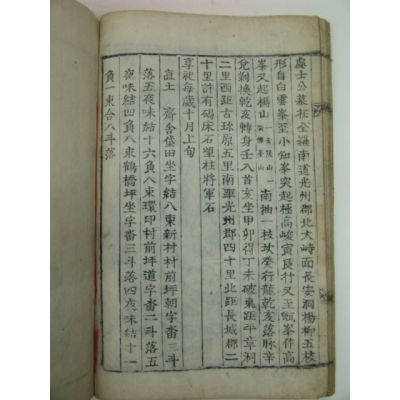 處士公墓在全羅南道光州郡北大峙面長安洞楊柳五枝
形自白雲峯至小知峯突起極高峻寅艮行又至甑峯作高
峯又起楊山一云陵山一云佛臺山南抽一枝坎癸行龍乾亥落脉辛
兌剝換乾亥轉身壬入首亥坐甲卯得丁未破東距平章洞
二里西距古珍原五里南距光州郡四十里北距長城郡二
十里計有碣床石望柱將軍石
享祀每歲十月上旬
位土 齋舍垈田坐字結八束新村村前坪朝字畓三斗
落五夜味結十六負八束環印村前坪道字畓二斗落五
夜味結四負八束鶴橋坪坐字畓三斗落四夜味結十一
負一束合八斗落